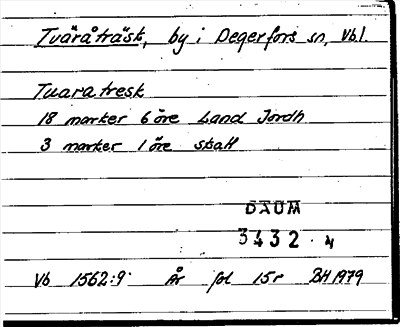 Tväråträsk, by i Degerfors sn, Vb l.
Tuaratresk
18 marker 6 öre Land Jordh
3 marker 1 öre skatt
DAUM
3432.4
Vb 1562:9 År fol 15r BH 1979